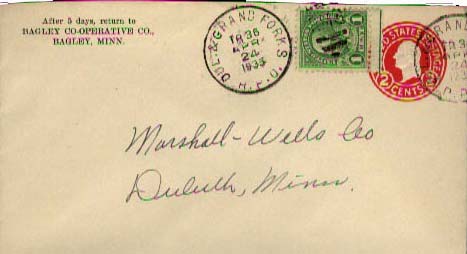 After 5 days, return to
BAGLEY CO-OPERATIVE CO.,
BAGLEY, MINN.
DUL. & GRAND FORKS
TR 36
APR
24
1933
R.P.O.
1 CENT 1
UNITED STATES POSTAGE
2 CENTS 2
GRAND
Marshall-Wells Co
Duluth, Minn.